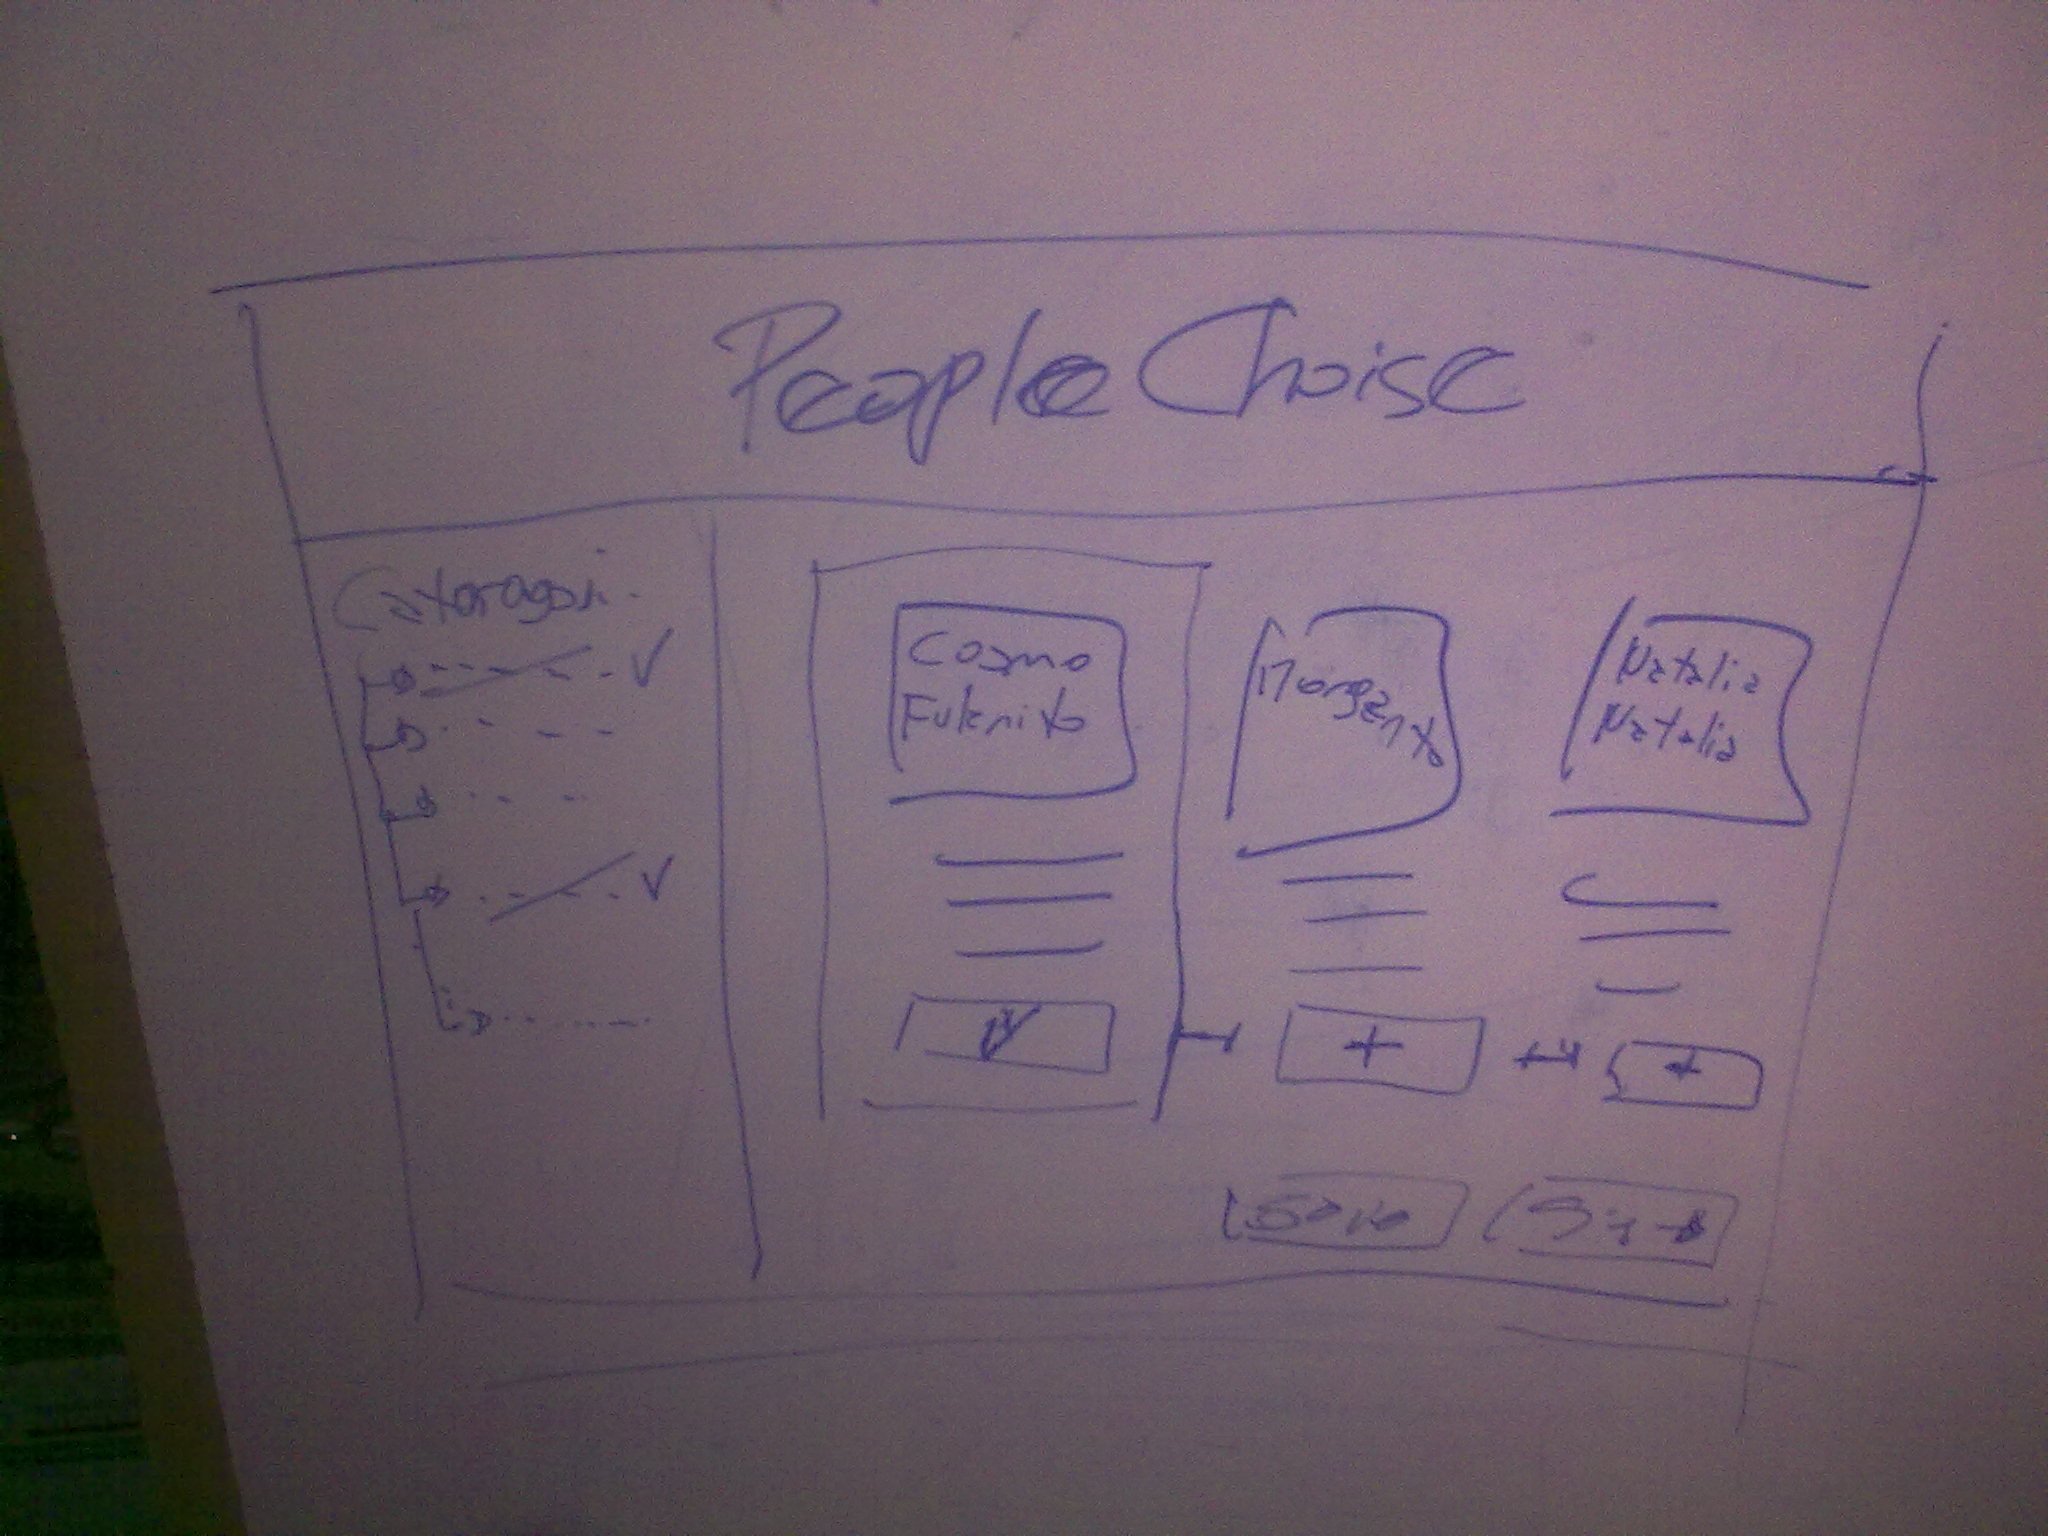 People Choise
Cosmo
Fulenito
Morgento
Natalia
Natalia
+
+
Save